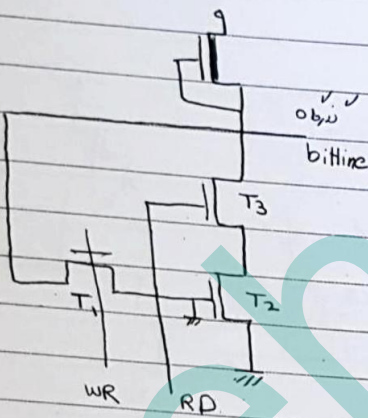 bitline
T3
T2
T1
WR
RD